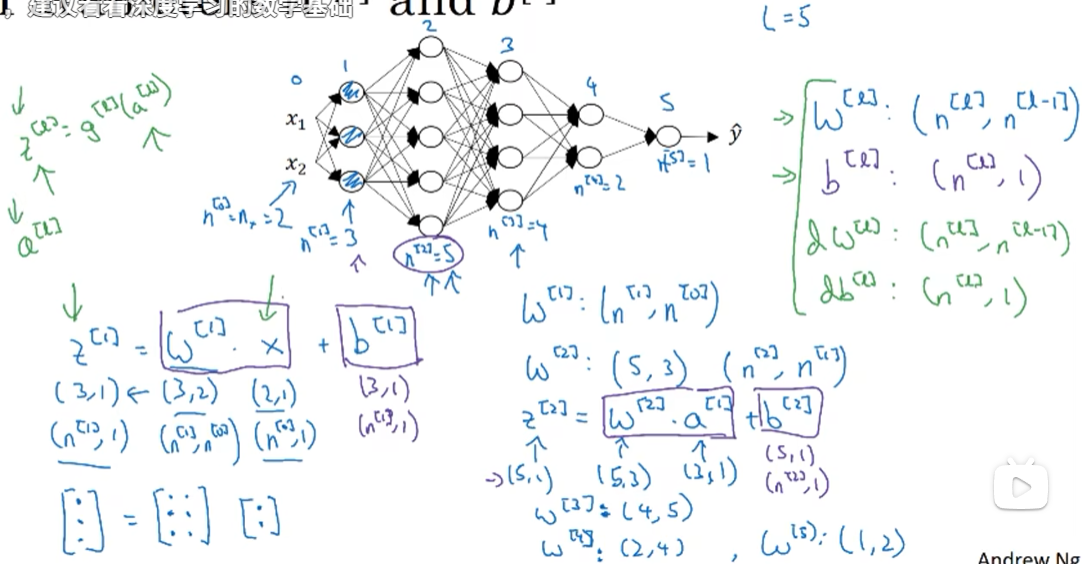 建议看看深度学习的数学基础
and b^[ ]
L = 5
0 1 2 3 4 5
x₁
x₂
ŷ
n^[0] = nₓ = 2
n^[1] = 3
n^[2] = 5
n^[3] = 4
n^[4] = 2
n^[5] = 1
z^[l] = g^[l](a^[l])
a^[l]
W^[l] : (n^[l], n^[l-1])
b^[l] : (n^[l], 1)
dW^[l] : (n^[l], n^[l-1])
db^[l] : (n^[l], 1)
z^[1] = W^[1] · x + b^[1]
(3,1) ← (3,2) (2,1) (3,1)
(n^[1], 1) (n^[1], n^[0]) (n^[0], 1) (n^[1], 1)
[⋮] = [⋮⋮] [:]
W^[1] : (n^[1], n^[0])
W^[2] : (5,3) (n^[2], n^[1])
z^[2] = W^[2] · a^[1] + b^[2]
→ (5,1) (5,3) (3,1) (5,1)
(n^[2], 1)
W^[3] : (4,5)
W^[4] : (2,4) , W^[5] : (1,2)
Andrew Ng